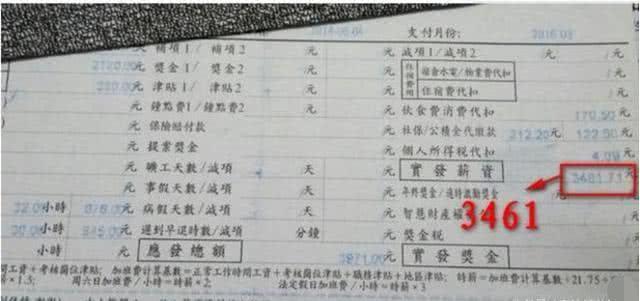 支付月份:
補項1/ 補項2 元 減項1/減項2 元
2120.00 元 獎金1/ 獎金2 元 住宿費用 宿舍水電/物業費代扣 元
元 津貼1/ 津貼2 元 住宿費代扣 元
元 鐘點費1/鐘點費2 元 伙食費消費代扣 170.50 元
元 保險賠付款 元 社保/公積金代繳款 212.20 元 122.50 元
元 提案獎金 元 個人所得税代扣 4.09 元
元 曠工天數/減項 天 元 實發薪資 3461.71 元
元 事假天數/減項 天 元
小時 元 病假天數/減項 天 元 智慧財產
3461
小時 元 遲到早退時數/減項 分鐘 元 獎金税 元
小時 元 應發總額 3971.00 元 實發獎金 元
間工資+考核崗位津貼; 加班費計算基數=正常工作時間工資+考核崗位津貼+職務津貼+地區津貼; 時薪=加班費計算基數÷21.75÷
×1.5; 周六日加班費/小時=時薪×2 法定假日加班費/小時=時薪×3